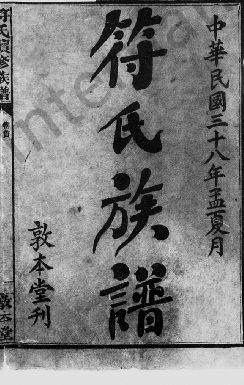 中華民國三十八年孟夏月
符氏族譜
敦本堂刊
符氏續修族譜
卷首
敦本堂